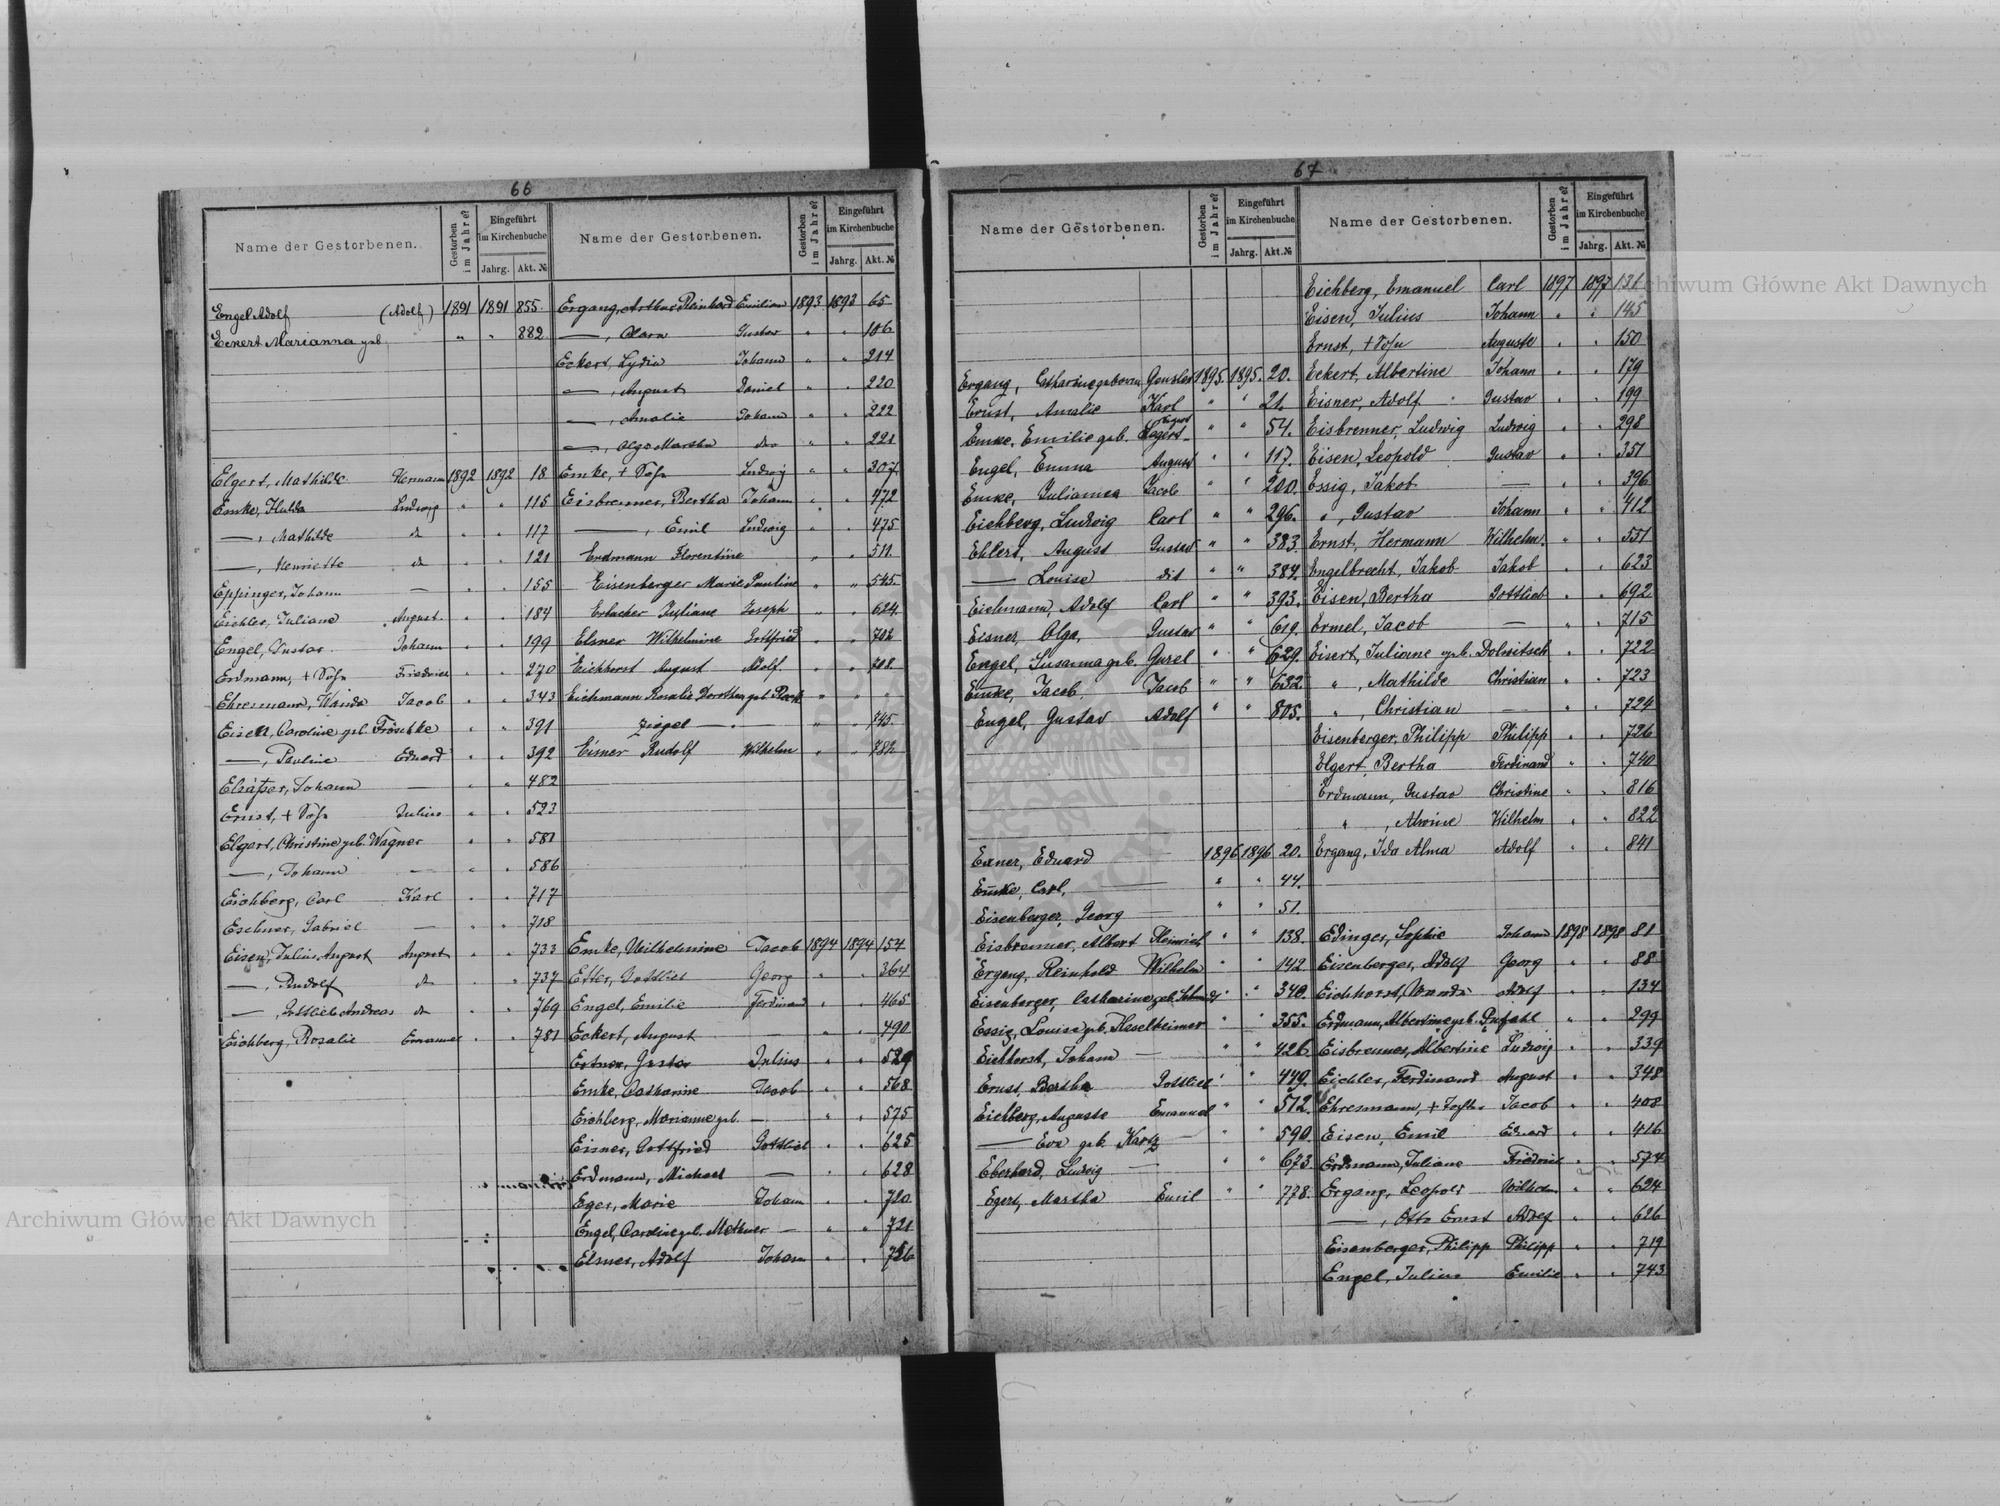 66
Name der Gestorbenen. Gestorben im Jahre? Eingeführt im Kirchenbuche Jahrg. Akt. №
Engel Adolf (Adolf) 1891 1891 855.
Eckert Marianna geb " " 882
Elgert, Mathilde Hermann 1892 1892 18
Emke, Hulda Ludwig " " 115
—, Mathilde do " " 117
—, Henriette do " " 121
Eppinger, Johann — " " 155
Eichler, Juliana August " " 184
Engel, Gustav Johann " " 199
Erdmann, + Sohn Friedrich " " 270
Ehresmann, Wanda Jacob " " 343
Eisen, Caroline geb. Fröschke " " 391
—, Pauline Eduard " " 392
Elsässer, Johann — " " 482
Ernst, + Sohn Julius " " 523
Elgert, Christine geb. Wagner " " 581
—, Johann — " " 586
Eichberg, Carl Karl " " 717
Eschner, Gabriel — " " 718
Eisen, Julius August August " " 733
—, Rudolf do " " 737
—, Gottlieb Andreas do " " 769
Eichberg, Rosalie Emanuel " " 781
Name der Gestorbenen. Gestorben im Jahre? Eingeführt im Kirchenbuche Jahrg. Akt. №
Ergang, Arthur Reinhard Emilian 1893 1893 65
—, Clara Gustav " " 106
Eckert, Lydia Johann " " 214
—, August Daniel " " 220
—, Amalie Johann " " 222
—, Olga Martha do " " 221
Emke, + Sohn Ludwig " " 307
Eisbrenner, Bertha Johann " " 472
—, Emil Ludwig " " 475
Erdmann Florentine " " 511
Eisenberger Marie Pauline " " 545
Erlacher Juliane Joseph " " 624
Elsner Wilhelmine Gottfried " " 702
Eichhorst August Adolf " " 708
Eichmann Rosalie Dorothea geb " " "
Ziegel — " " 745
Eisner Rudolf Wilhelm " " 782
Emke, Wilhelmine Jacob 1894 1894 154
Etter, Gottlieb Georg " " 364
Engel, Emilie Ferdinand " " 465
Eckert, August " " 490
Gustav Julius " " 529
Emke, Catharine Jacob " " 568
Eichberg, Marianne geb. — " " 575
Eisner, Gottfried Gottlieb " " 625
Erdmann, Michael — " " 628
Eger, Marie Johann " " 720
Engel, Caroline geb. Methner — " " 721
Elsner, Adolf Johann " " 726
67
Name der Gestorbenen. Gestorben im Jahre? Eingeführt im Kirchenbuche Jahrg. Akt. №
Ergang, Catharine geborne Gensler 1895. 1895. 20.
Ernst, Amalie Karl " " 21.
Emke, Emilie geb. Eggert " " 54.
Engel, Emma August " " 117.
Emke, Julianna Jacob " " 200.
Eichberg, Ludwig Carl " " 296.
Ehlert, August Gustav " " 383.
— Louise dit " " 384.
Eichmann, Adolf Carl " " 393.
Eisner, Olga, Gustav " " 619.
Engel, Susanna geb. Gurel " " 629.
Emke, Jacob, Jacob " " 632.
Engel, Gustav Adolf " " 805.
Exner, Eduard 1896 1896 20.
Emke, Carl, — " " 44.
Eisenberger, Georg — " " 51.
Eisbrenner, Albert Heinrich " " 138.
Ergang, Reinhold Wilhelm " " 142.
Eisenberger, Catharine geb. Schmidt " " 340.
Essig, Louise geb. Heselheimer " " 355.
Eichhorst, Johann — " " 426.
Ernst, Bertha Gottlieb " " 449.
Eichberg, Auguste Emanuel " " 512.
— Eva geb. Kartz — " " 590.
Eberhard, Ludwig — " " 673
Egert, Martha Emil " " 778.
Name der Gestorbenen. Gestorben im Jahre? Eingeführt im Kirchenbuche Jahrg. Akt. №
Eichberg, Emanuel Carl 1897 1897 131
Eisen, Julius Johann " " 145
Ernst, + Sohn Auguste " " 150
Eckert, Albertine Johann " " 179
Eisner, Adolf Gustav " " 199
Eisbrenner, Ludwig Ludwig " " 298
Eisen, Leopold Gustav " " 351
Essig, Jakob — " " 396
", Gustav Johann " " 412
Ernst, Hermann Wilhelm. " " 551
Engelbrecht, Jakob Jakob " " 623
Eisen, Bertha Gottlieb " " 692
Ermel, Jacob — " " 715
Eisert, Juliane geb. Dolnitsch " " 722
", Mathilde Christian " " 723
", Christian — " " 724
Eisenberger, Philipp Philipp " " 726
Elgert, Bertha Ferdinand " " 740
Erdmann, Gustav Christine " " 816
", Alwine Wilhelm " " 822
Ergang, Ida Alma Adolf " " 841
Edinger, Sophie Johann 1898 1898 81
Eisenberger, Adolf Georg " " 88
Eichhorst, Wanda Adolf " " 134
Erdmann, Albertine geb. Pufahl " " 299
Eisbrenner, Albertine Ludwig " " 339
Eichler, Ferdinand August " " 348
Ehresmann, + Tochter Jacob " " 408
Eisen, Emil Eduard " " 416
Erdmann, Juliane Friedrich " " 574
Ergang, Leopold Wilhelm " " 624
—, Otto Ernst Adolf " " 626
Eisenberger, Philipp Philipp " " 719
Engel, Julius Emilie " " 743
Archiwum Główne Akt Dawnych
Archiwum Główne Akt Dawnych